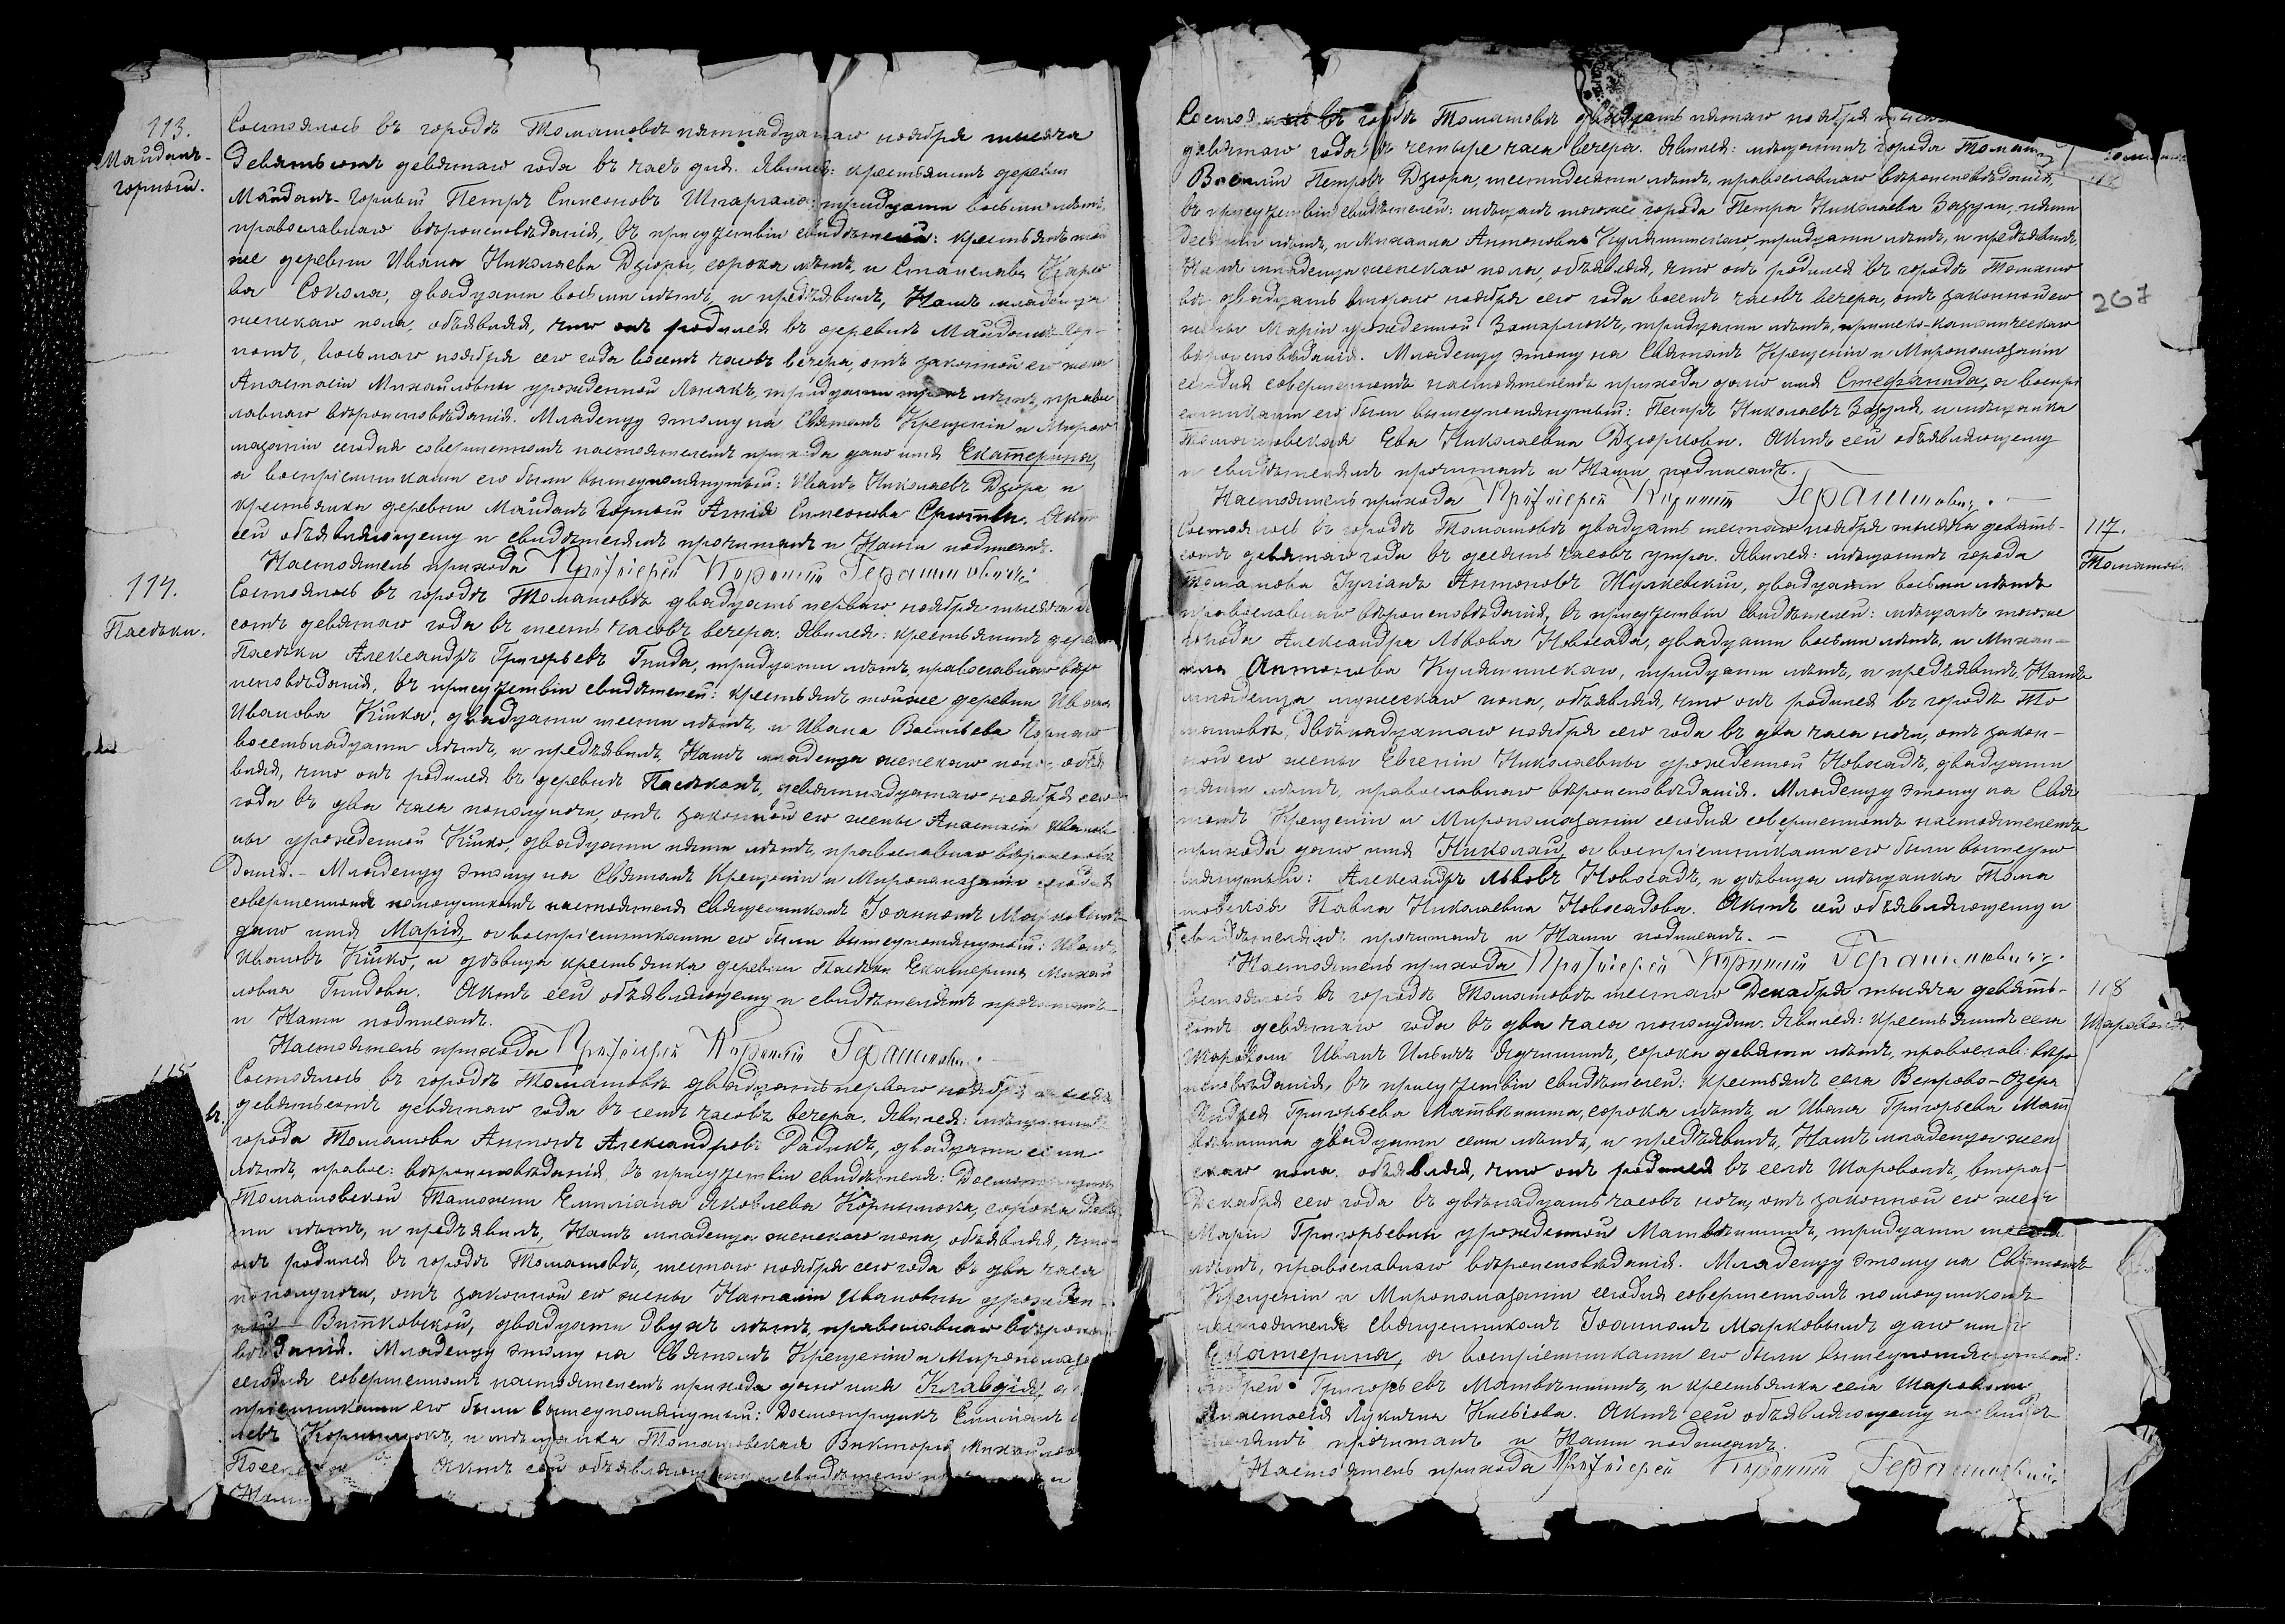 113.
Майданъ-
горный.
Состоялось въ городѣ Томашовѣ пятнадцатаго ноября тысяча
девятьсотъ девятаго года въ часъ дня. Явился: крестьянинъ деревни
Майданъ-Горный Петръ Симеоновъ Шкаргало, тридцати восьми лѣтъ,
православнаго вѣроисповѣданія, въ присутствіи свидѣтелей: крестьянъ той
же деревни Ивана Николаева Дзюры, сорока лѣтъ, и Станислава
ва Сокола, двадцати восьми лѣтъ, и предъявилъ Намъ младенца
женскаго пола, объявляя, что онъ родился въ деревнѣ Майданѣ-Гор-
номъ, восьмаго ноября сего года восемь часовъ вечера, отъ законной его жены
Анастасіи Михайловны урожденной Лопакъ, тридцати трехъ лѣтъ, правос
лавнаго вѣроисповѣданія. Младенцу этому на Святомъ Крещеніи и Миропо
мазаніи сегодня совершенномъ настоятелемъ прихода дано имя Екатерина,
а воспріемниками его были вышеупомянутый: Иванъ Николаевъ Дзюра и
крестьянка деревни Майданъ Горный Анна Симеонова. Актъ
сей объявляющему и свидѣтелямъ прочитанъ и Нами подписанъ.
Настоятель прихода Протоіерей Корнилій Герашиловичъ
114.
Пасѣки.
Состоялось въ городѣ Томашовѣ двадцать перваго ноября тысяча де
сотъ девятаго года въ шесть часовъ вечера. Явился: крестьянинъ деревни
Пасѣки Александръ Григорьевъ Гнида, тридцати лѣтъ, православнаго вѣро
исповѣданія, въ присутствіи свидѣтелей: крестьянъ той же деревни Ивана
Иванова Кицка, двадцати шести лѣтъ, и Ивана Васильева Чорнаго
восемьнадцати лѣтъ, и предъявилъ Намъ младенца женскаго пола, объя
вляя, что онъ родился въ деревнѣ Пасѣкахъ, девятнадцатаго ноября сего
года въ два часа пополуночи, отъ законной его жены Анастасіи Иванов
ны урожденной Кицко, двадцати пяти лѣтъ, православнаго вѣроисповѣ
данія. - Младенцу этому на Святомъ Крещеніи и Миропомазаніи сегодня
совершенномъ помощникомъ настоятеля Священникомъ Іоанномъ Марковымъ
дано имя Марія, а воспріемниками его были вышеупомянутый: Иванъ
Ивановъ Кицко, и дѣвица крестьянка деревни Пасѣки Екатерина Михай
ловна Гнидова. Актъ сей объявляющему и свидѣтелямъ прочитанъ
и Нами подписанъ.
Настоятель прихода Протоіерей Корнилій Герашиловичъ
115
Состоялось въ городѣ Томашовѣ двадцать перваго ноября тысяча
девятьсотъ девятаго года въ семь часовъ вечера. Явился: мѣщанинъ
города Томашова Антонъ Александровъ Радикъ, двадцати семи
лѣтъ, правос: вѣроисповѣданія, въ присутствіи свидѣтеля: Досмотрщика
Томашовской Таможни Емиліана Яковлева Корнилюка, сорока девя
ти лѣтъ, и предъявилъ, Намъ младенца женскаго пола, объявляя, что
онъ родился въ городѣ Томашовѣ, шестаго ноября сего года въ два часа
пополуночи, отъ законной его жены Наталіи Ивановны урожден-
ной Витковской, двадцати двухъ лѣтъ, православнаго вѣроиспо
вѣданія. Младенцу этому на Святомъ Крещеніи и Миропомаза
сегодня совершенномъ настоятелемъ прихода дано имя Клавдія, а
пріемниками его были вышеупомянутый: Досмотрщикъ Емиліанъ
левъ Корнилюкъ, и мѣщанка Томашовская Викторія Михайлов
Актъ сей объявляющему и свидѣтелю
Нами
Состоялось въ городѣ Томашовѣ двадцать пятаго ноября тысяча
девятаго года въ четыре часа вечера. Явился: мѣщанинъ города Томашова
Василій Петровъ Дзюра, шестидесяти лѣтъ, православнаго вѣроисповѣданія,
въ присутствіи свидѣтелей: мѣщанъ того же города Петра Николаева Зазули, пяти
десяти лѣтъ, и Михаила Антонова Кулятинскаго тридцати лѣтъ, и предъявилъ,
Намъ младенца женскаго пола, объявляя, что онъ родился въ городѣ Томашо
вѣ двадцать втораго ноября сего года восемь часовъ вечера, отъ законной его
жены Маріи урожденной Захарюкъ, тридцати лѣтъ, римско-католическаго
вѣроисповѣданія. Младенцу этому на Святомъ Крещеніи и Миропомазаніи
сегодня совершенномъ настоятелемъ прихода дано имя Стефанида, а воспрі
емниками его были вышеупомянутый: Петръ Николаевъ Зазуля, и мѣщанка
Томашовская Ева Николаевна Дзюркова. Актъ сей объявляющему
и свидѣтелямъ прочитанъ и Нами подписанъ.
Настоятель прихода Протоіерей Корнилій Герашиловичъ.
267
117.
Томашовъ
Состоялось въ городѣ Томашовѣ двадцать шестаго ноября тысяча девять-
сотъ девятаго года въ десять часовъ утра. Явился: мѣщанинъ города
Томашова Іуліанъ Антоновъ Жулкевскій, двадцати восьми лѣтъ
православнаго вѣроисповѣданія, въ присутствіи свидѣтелей: мѣщанъ того же
города Александра Львова Новосада, двадцати восьми лѣтъ, и Михаи-
ила Антонова Кулятинскаго, тридцати лѣтъ, и предъявилъ Намъ
младенца мужескаго пола, объявляя, что онъ родился въ городѣ То
машовѣ, двѣнадцатаго ноября сего года въ два часа ночи, отъ закон-
ной его жены Евгеніи Николаевны урожденной Новосадъ, двадцати
пяти лѣтъ, православнаго вѣроисповѣданія. Младенцу этому на Свя
томъ Крещеніи и Миропомазаніи сегодня совершенномъ настоятелемъ
прихода дано имя Николай, а воспріемниками его были вышеупо
мянутый: Александръ Львовъ Новосадъ, и дѣвица мѣщанка Тома
шовская Павла Николаевна Новосадова. Актъ сей объявляющему и
свидѣтелямъ прочитанъ и Нами подписанъ. -
Настоятель прихода Протоіерей Корнилій Герашиловичъ.
118
Шаровол
Состоялось въ городѣ Томашовѣ шестаго Декабря тысяча девять-
сотъ девятаго года въ два часа пополудни. Явился: крестьянинъ села
Шароволи Иванъ Ильичъ Ячичинъ, сорока девяти лѣтъ, православ: вѣро
исповѣданія, въ присутствіи свидѣтелей: крестьянъ села Вепрово-Озера
Андрея Григорьева Матвѣишина, сорока лѣтъ, и Ивана Григорьева Мат
вѣишина двадцати семи лѣтъ, и предъявилъ, Намъ младенца жен
скаго пола, объявляя, что онъ родился въ селѣ Шароволѣ, втораго
Декабря сего года въ двѣнадцать часовъ ночи, отъ законной его жены
Маріи Григорьевны урожденной Матвѣишинъ, тридцати шести
лѣтъ, православнаго вѣроисповѣданія. Младенцу этому на Святомъ
Крещеніи и Миропомазаніи сегодня совершенномъ помощникомъ
настоятеля Священникомъ Іоанномъ Марковымъ дано имя
Екатерина, а воспріемниками его были вышеупомянутый:
Андрей Григорьевъ Матвѣишинъ, и крестьянка села Шароволи
Анастасія Лукична. Актъ сей объявляющему и свидѣ
телямъ прочитанъ и Нами подписанъ.
Настоятель прихода Протоіерей Корнилій Герашиловичъ